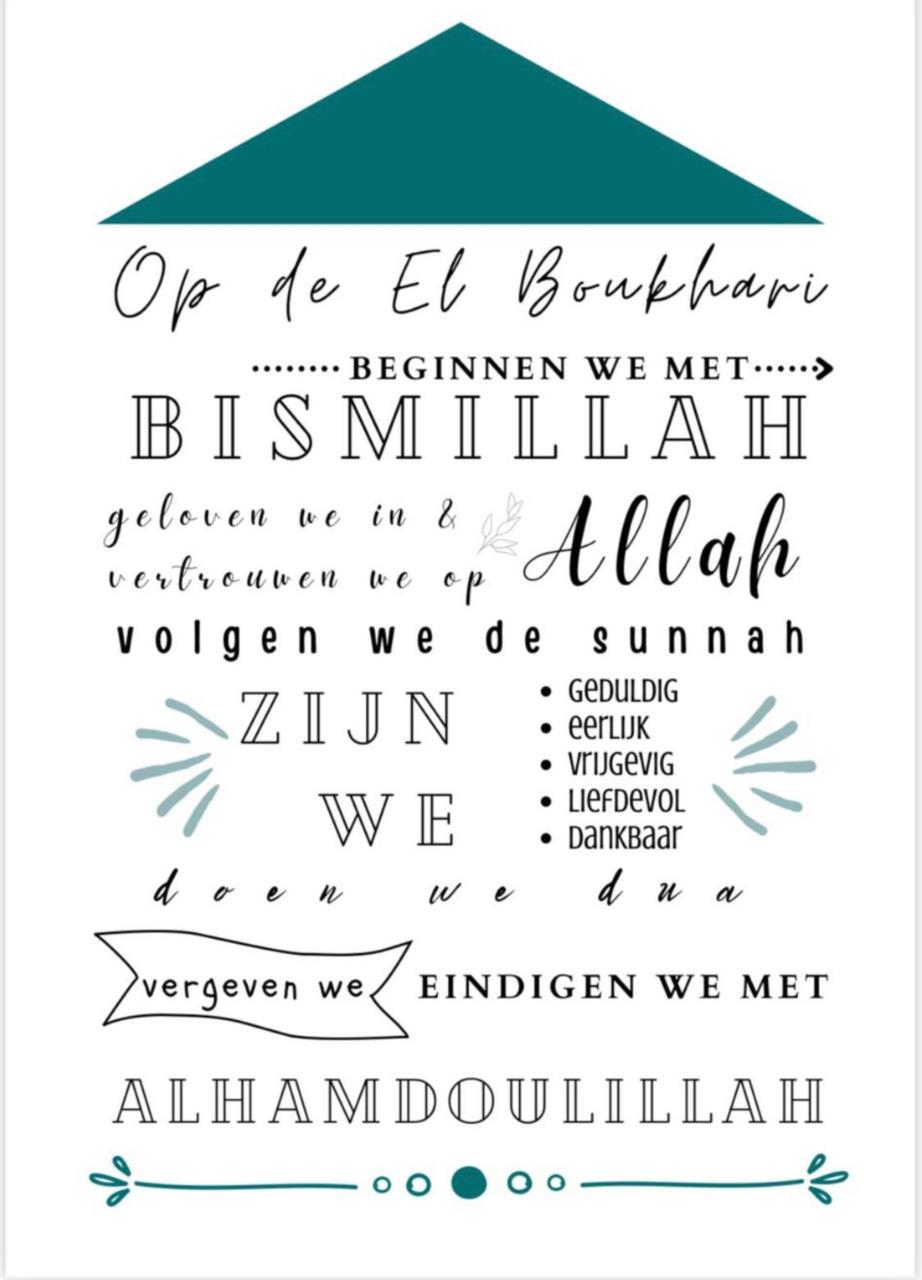 Op de El Boukhari
BEGINNEN WE MET
BISMILLAH
geloven we in &
vertrouwen we op Allah
volgen we de sunnah
ZIJN WE
• GEDULDIG
• EERLIJK
• VRIJGEVIG
• LIEFDEVOL
• DANKBAAR
doen we dua
vergeven we EINDIGEN WE MET
ALHAMDOULILLAH